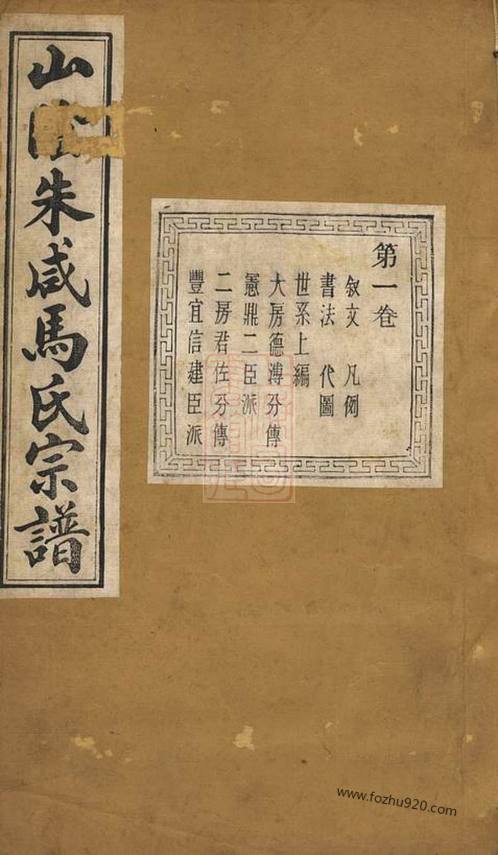 山陰朱咸馬氏宗譜
第一卷
叙文 凡例
書法 代圖
世系上編
大房德溥分傳
憲鼎二臣派
二房君佐分傳
豐宜信建臣派
www.fozhu920.com